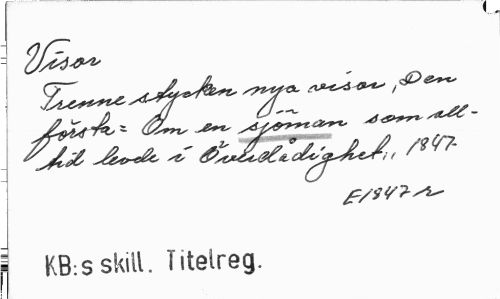 Visor
Trenne stycken nya visor, Den
första = Om en sjöman som all-
tid levde i Överdådighet,, 1847
E1847 r
KB:s skill. Titelreg.